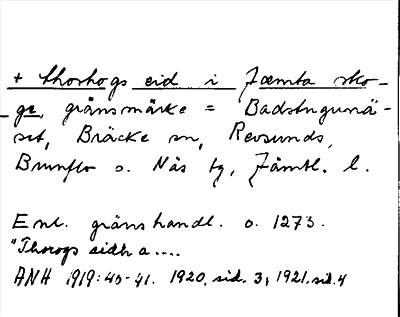 + Thorhogs eid i Jæmta sko-
ge, gränsmärke = Badstugunä-
set, Bräcke sn, Revsunds,
Brunflo o. Näs tg, Jämtl. l.
Enl. gränshandl. o. 1273.
"Thorogs eidh a....
ANH 1919:40-41. 1920, sid. 3, 1921, sid. 4